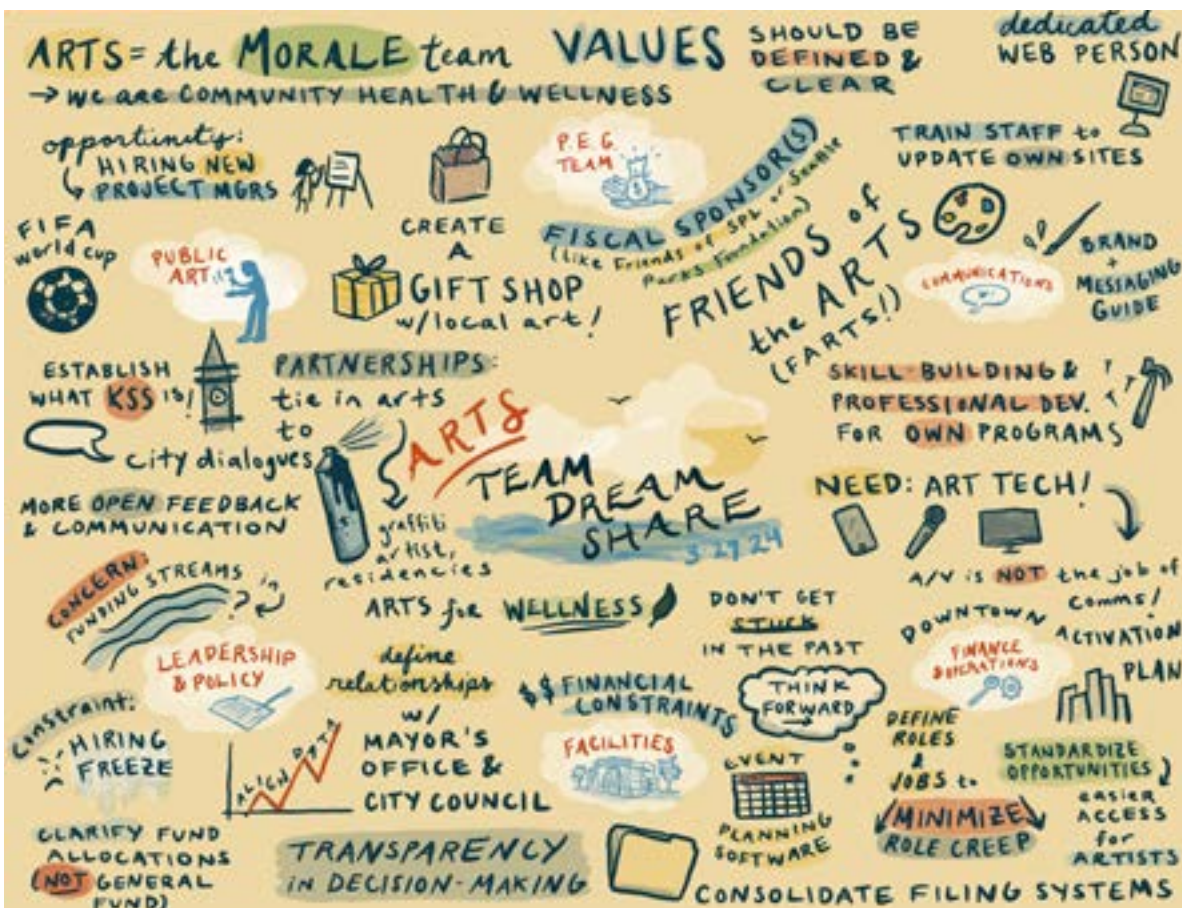 ARTS = the MORALE team
→ we are COMMUNITY HEALTH & WELLNESS
VALUES SHOULD BE
DEFINED &
CLEAR
dedicated
WEB PERSON
opportunity:
HIRING NEW
PROJECT MGRS
P.E.G.
TEAM
TRAIN STAFF to
UPDATE OWN SITES
FIFA
world cup
PUBLIC
ART
CREATE
A
GIFT SHOP
w/local art!
FISCAL SPONSOR(S)
(Like Friends of SPL or Seattle
Parks Foundation)
FRIENDS of
the ARTS
(FARTS!)
COMMUNICATIONS
BRAND
+
MESSAGING
GUIDE
ESTABLISH
WHAT KSS IS!
PARTNERSHIPS:
tie in arts
to
city dialogues
graffiti
artist,
residencies
SKILL-BUILDING &
PROFESSIONAL DEV.
FOR OWN PROGRAMS
ARTS
TEAM
DREAM
SHARE
3 27 24
MORE OPEN FEEDBACK
& COMMUNICATION
NEED: ART TECH!
A/V is NOT the job of
comms!
CONCERN:
FUNDING STREAMS in
?
ARTS for WELLNESS
DON'T GET
STUCK
IN THE PAST
THINK
FORWARD
DOWNTOWN
ACTIVATION
PLAN
LEADERSHIP
& POLICY
define
relationships
w/
MAYOR'S
OFFICE &
CITY COUNCIL
$$ FINANCIAL
CONSTRAINTS
FINANCE
& OPERATIONS
Constraint:
HIRING
FREEZE
ALIGN DPTS
FACILITIES
EVENT
PLANNING
SOFTWARE
DEFINE
ROLES
&
JOBS to
MINIMIZE
ROLE CREEP
STANDARDIZE
OPPORTUNITIES
easier
ACCESS
for
ARTISTS
CLARIFY FUND
ALLOCATIONS
(NOT GENERAL
FUND)
TRANSPARENCY
in DECISION-MAKING
CONSOLIDATE FILING SYSTEMS